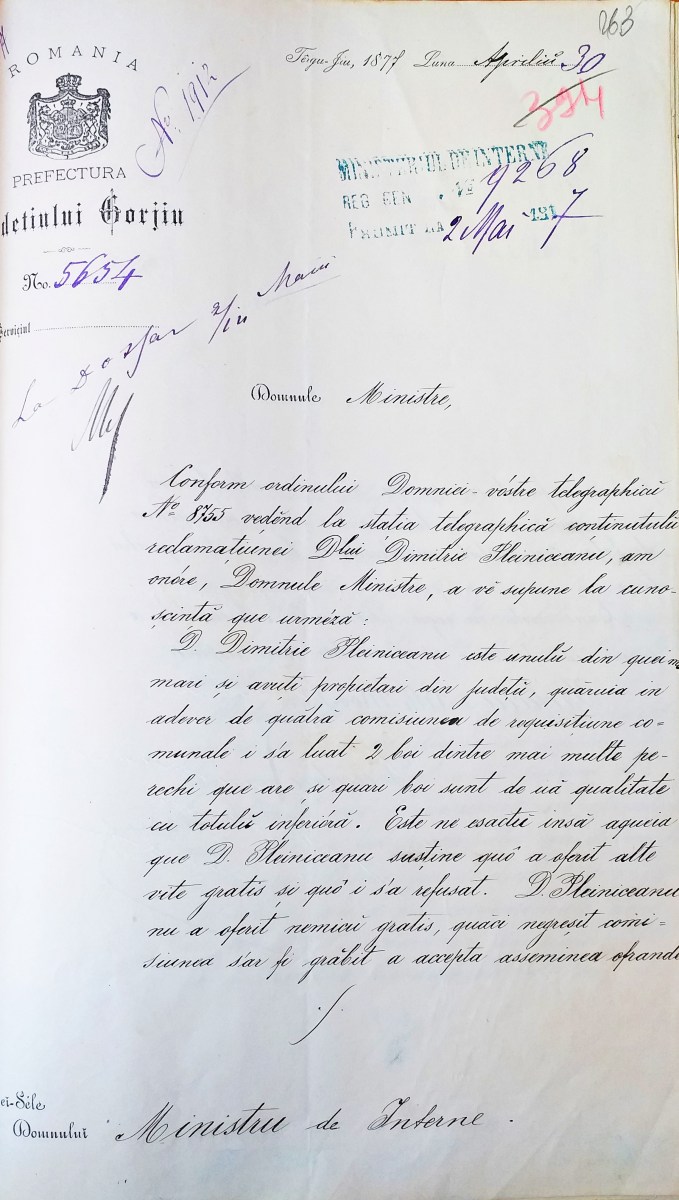 263
ROMANIA
Têrgu-Jiu, 1877 Luna Aprilíŭ 30
No. 1912
394
PREFECTURA
MINISTERIUL DE INTERNE
REG GEN No 9268
detiului Gorjiu
PRIMIT LA 2 Mai 187 7
No. 5654
Serviciul
La Dosar 2/iu Maiu
Domnule Ministre,
Conform ordinului Domniei-vóstre telegraphicŭ
No 8755 vedĕnd la statia telegraphică continutulŭ
reclamațiunei Dlui Dimitrie Pleiniceanu, am
onóre, Domnule Ministre, a vĕ supune la cuno-
scintă que urméză:
D. Dimitrie Pleiniceanu este unulŭ din quei m
mari și avuti propietari din judetŭ, quăruia in
adever de quătră comisiunea de requisițiune co-
munale i s'a luat 2 boi dintre mai multe pe-
rechi que are și quari boi sunt de uă qualitate
cu totulŭ inferióră. Este ne esactŭ insă aqueia
que D. Pleiniceanu susține quŏ a oferit alte
vite gratis și quŏ i s'a refusat. D. Pleiniceanu
nu a oferit nemicŭ gratis, quăci negreșit comi=
siunea s'ar fi grăbit a accepta asseminea ofrande
./.
ei-Séle
Domnuluĭ Ministru de Interne.